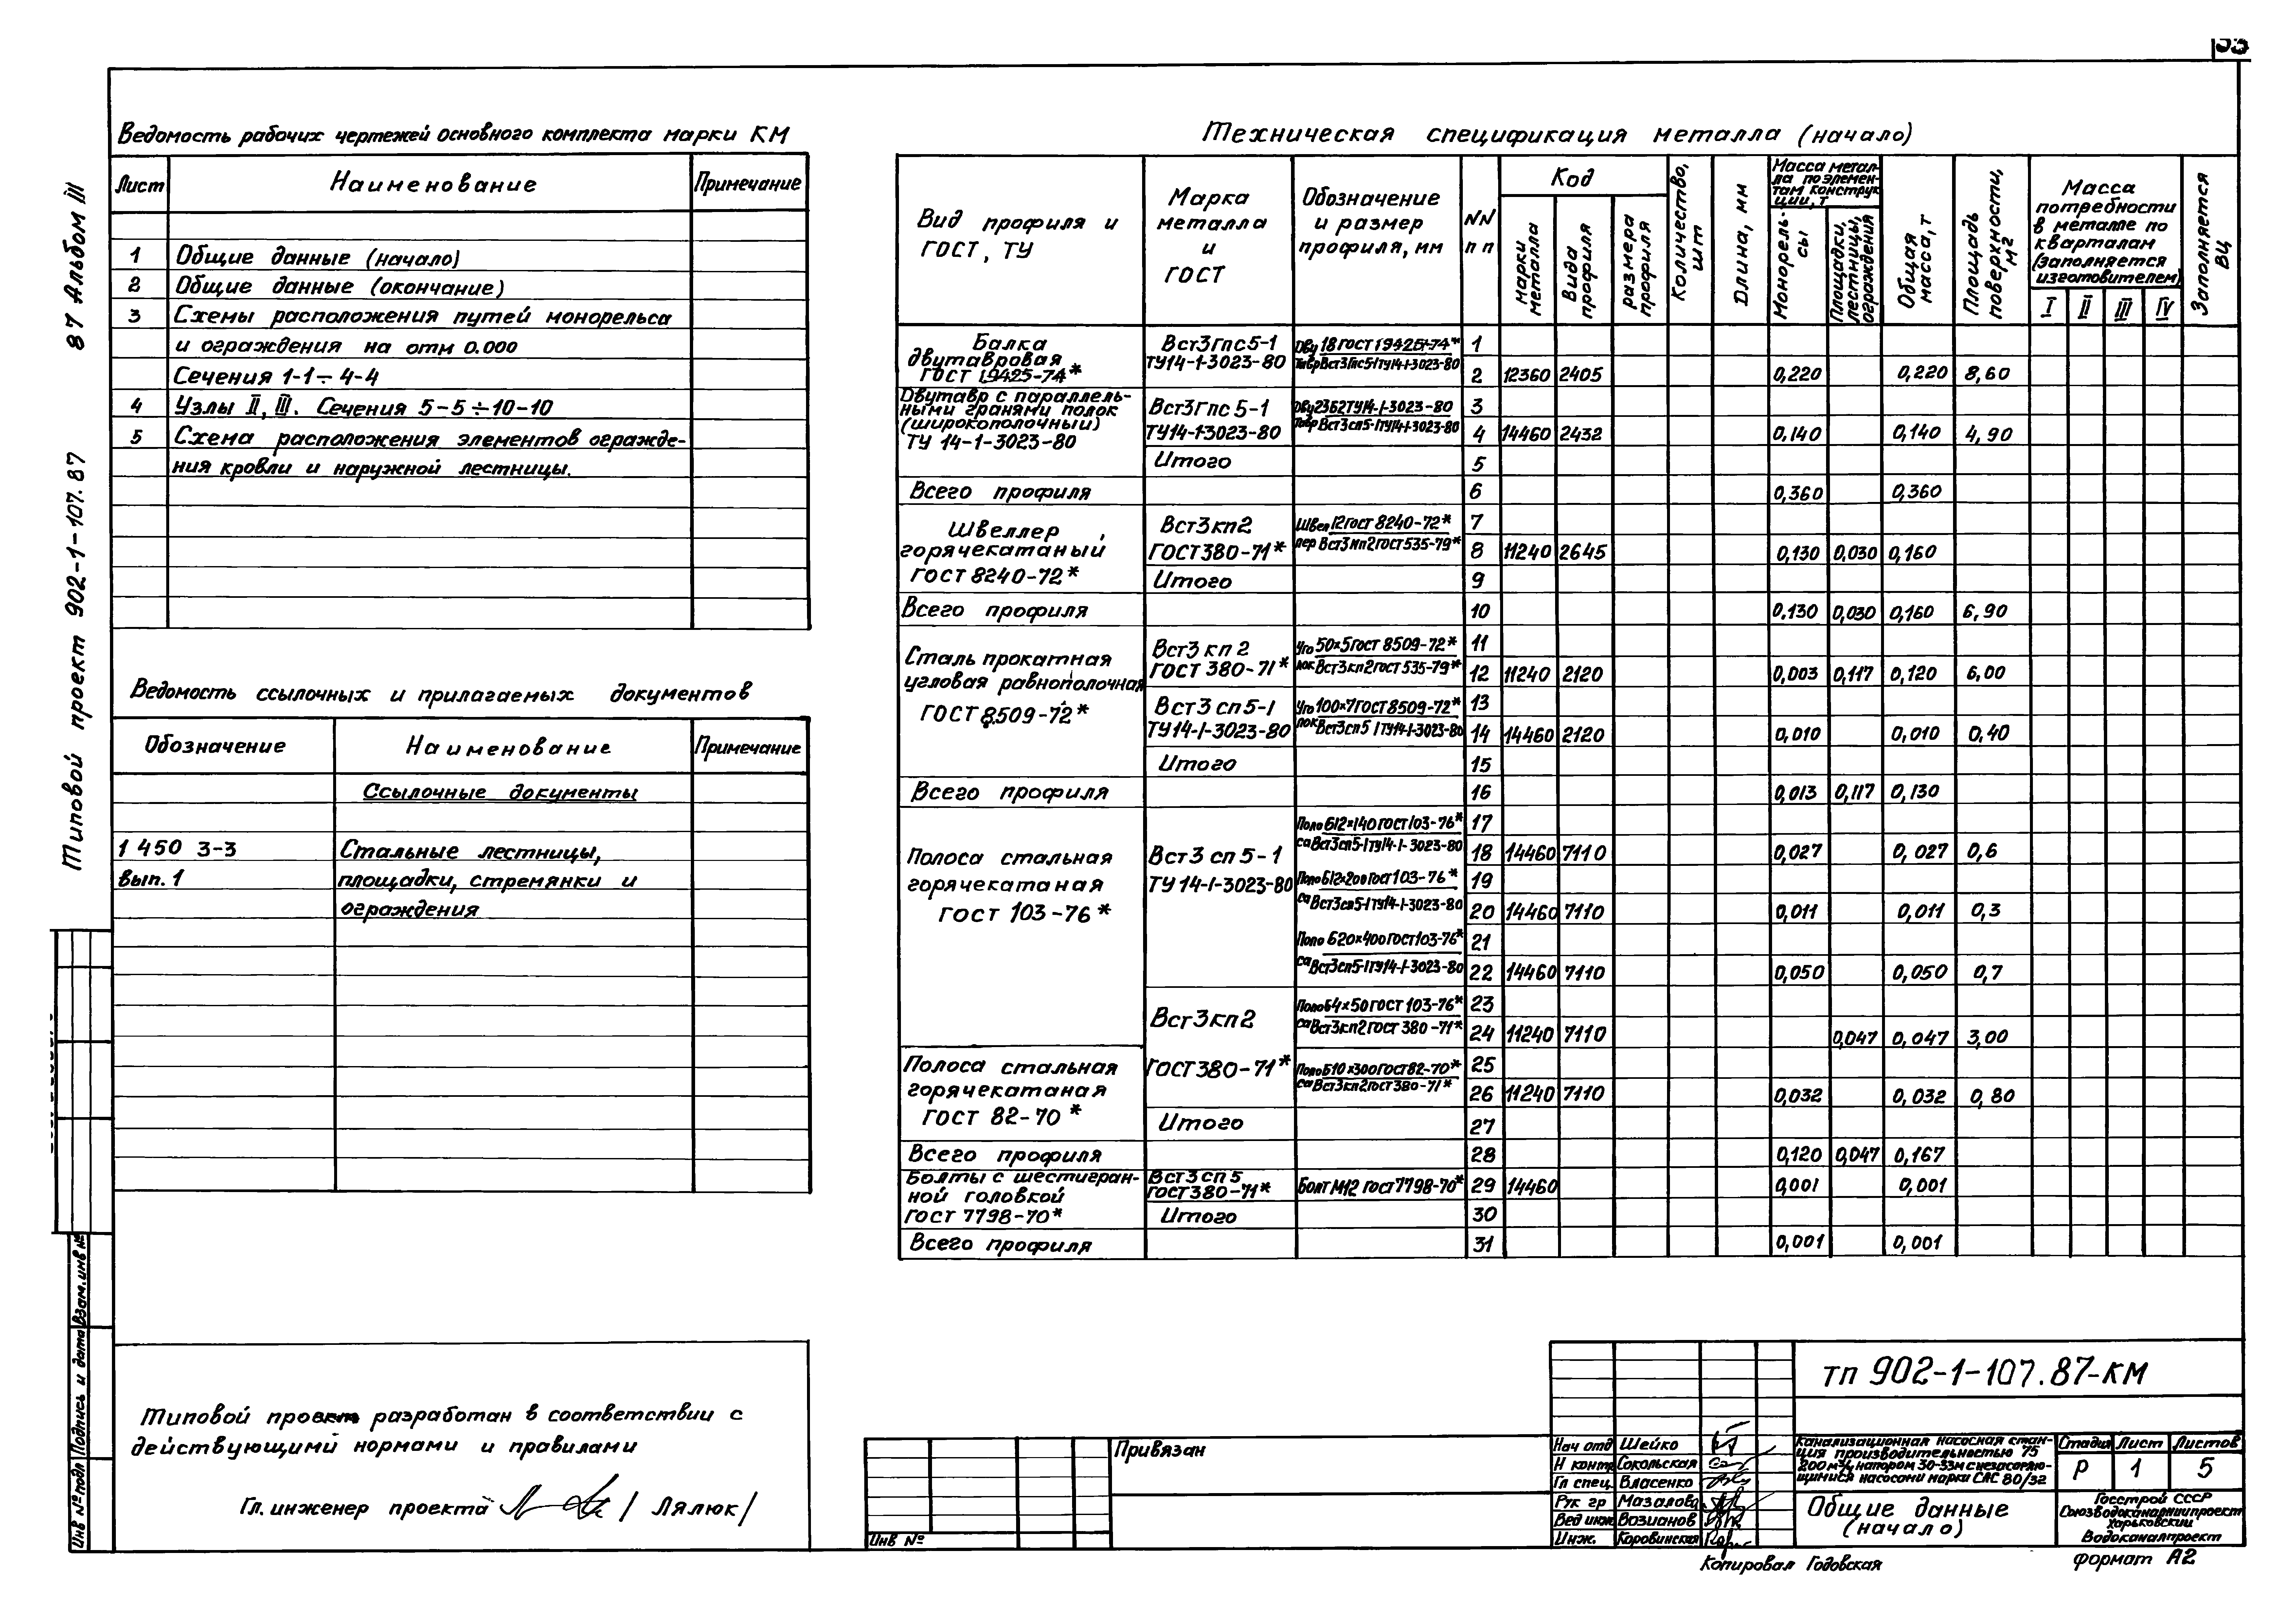 87 Альбом III
Типовой проект 902-1-107.87
Ведомость рабочих чертежей основного комплекта марки КМ
Лист Наименование Примечание
1 Общие данные (начало)
2 Общие данные (окончание)
3 Схемы расположения путей монорельса
и ограждения на отм 0.000
Сечения 1-1÷4-4
4 Узлы II, III. Сечения 5-5÷10-10
5 Схема расположения элементов огражде-
ния кровли и наружной лестницы.
Ведомость ссылочных и прилагаемых документов
Обозначение Наименование Примечание
Ссылочные документы
1 450 3-3 Стальные лестницы,
вып. 1 площадки, стремянки и
ограждения
Типовой проект разработан в соответствии с
действующими нормами и правилами
Гл. инженер проекта / Лялюк /
Взам. инв №
Подпись и дата
Инв № подл
Техническая спецификация металла (начало)
Вид профиля и
ГОСТ, ТУ
Марка
металла
и
ГОСТ
Обозначение
и размер
профиля, мм
NN
п п
Код
марки
металла
Вида
профиля
размера
профиля
Количество,
шт
Длина, мм
Масса метал-
ла по элемен-
там конструк
ции, т
Монорель-
сы
Площадки,
лестницы,
ограждения
Общая
масса, т
Площадь
поверхности,
м2
Масса
потребности
в металле по
кварталам
(заполняется
изготовителем)
I II III IV
Заполняется
ВЦ
Балка
двутавровая
ГОСТ 19425-74*
Вст3Гпс5-1
ТУ14-1-3023-80
Дву 18 ГОСТ 19425-74* 1
тавр Вст3Гпс5-1ТУ14-1-3023-80
2 12360 2405 0,220 0,220 8,60
Двутавр с параллель-
ными гранями полок
(широкополочный)
ТУ 14-1-3023-80
Вст3Гпс5-1
ТУ14-1-3023-80
Дву 23Б2ТУ14-1-3023-80 3
тавр Вст3сп5-1ТУ14-1-3023-80
4 14460 2432 0,140 0,140 4,90
Итого 5
Всего профиля 6 0,360 0,360
Швеллер
горячекатаный
ГОСТ 8240-72*
Вст3кп2
ГОСТ380-71*
Швел 12ГОСТ 8240-72* 7
лер Вст3кп2ГОСТ535-79* 8 11240 2645 0,130 0,030 0,160
Итого 9
Всего профиля 10 0,130 0,030 0,160 6,90
Сталь прокатная
угловая равнополочная
ГОСТ 8509-72*
Вст3 кп 2
ГОСТ 380-71*
Уго 50×5ГОСТ 8509-72* 11
лок Вст3кп2ГОСТ535-79* 12 11240 2120 0,003 0,117 0,120 6,00
Вст3 сп5-1
ТУ14-1-3023-80
Уго 100×7ГОСТ8509-72* 13
лок Вст3сп5 1ТУ14-1-3023-80 14 14460 2120 0,010 0,010 0,40
Итого 15
Всего профиля 16 0,013 0,117 0,130
Полоса стальная
горячекатаная
ГОСТ 103-76*
Вст3 сп5-1
ТУ14-1-3023-80
Поло Б12×140ГОСТ103-76* 17
са Вст3сп5-1ТУ14-1-3023-80 18 14460 7110 0,027 0,027 0,6
Поло Б12×200ГОСТ103-76* 19
са Вст3сп5-1ТУ14-1-3023-80 20 14460 7110 0,011 0,011 0,3
Поло Б20×400ГОСТ103-76* 21
са Вст3сп5-1ТУ14-1-3023-80 22 14460 7110 0,050 0,050 0,7
Вст3кп2
ГОСТ380-71*
Поло Б4×50ГОСТ 103-76* 23
са Вст3кп2ГОСТ 380-71* 24 11240 7110 0,047 0,047 3,00
Полоса стальная
горячекатаная
ГОСТ 82-70*
Поло Б10×300ГОСТ82-70* 25
са Вст3кп2ГОСТ380-71* 26 11240 7110 0,032 0,032 0,80
Итого 27
Всего профиля 28 0,120 0,047 0,167
Болты с шестигран-
ной головкой
ГОСТ 7798-70*
Вст3сп5
ГОСТ380-71*
Болт М12 ГОСТ7798-70* 29 14460 0,001 0,001
Итого 30
Всего профиля 31 0,001 0,001
Привязан
Инв №
тп 902-1-107.87-КМ
Нач отд Шейко
Н контр Сокольская
Гл спец Власенко
Рук гр Мазалова
Вед инж Возианов
Инж. Коровинская
Канализационная насосная стан-
ция производительностью 75
200 м3/ч, напором 30-33м с незасоряю-
щимися насосами марки САС 80/32
Стадия Лист Листов
Р 1 5
Общие данные
(начало)
Госстрой СССР
Союзводоканалниипроект
Харьковский
Водоканалпроект
Копировал Годовская
формат А2